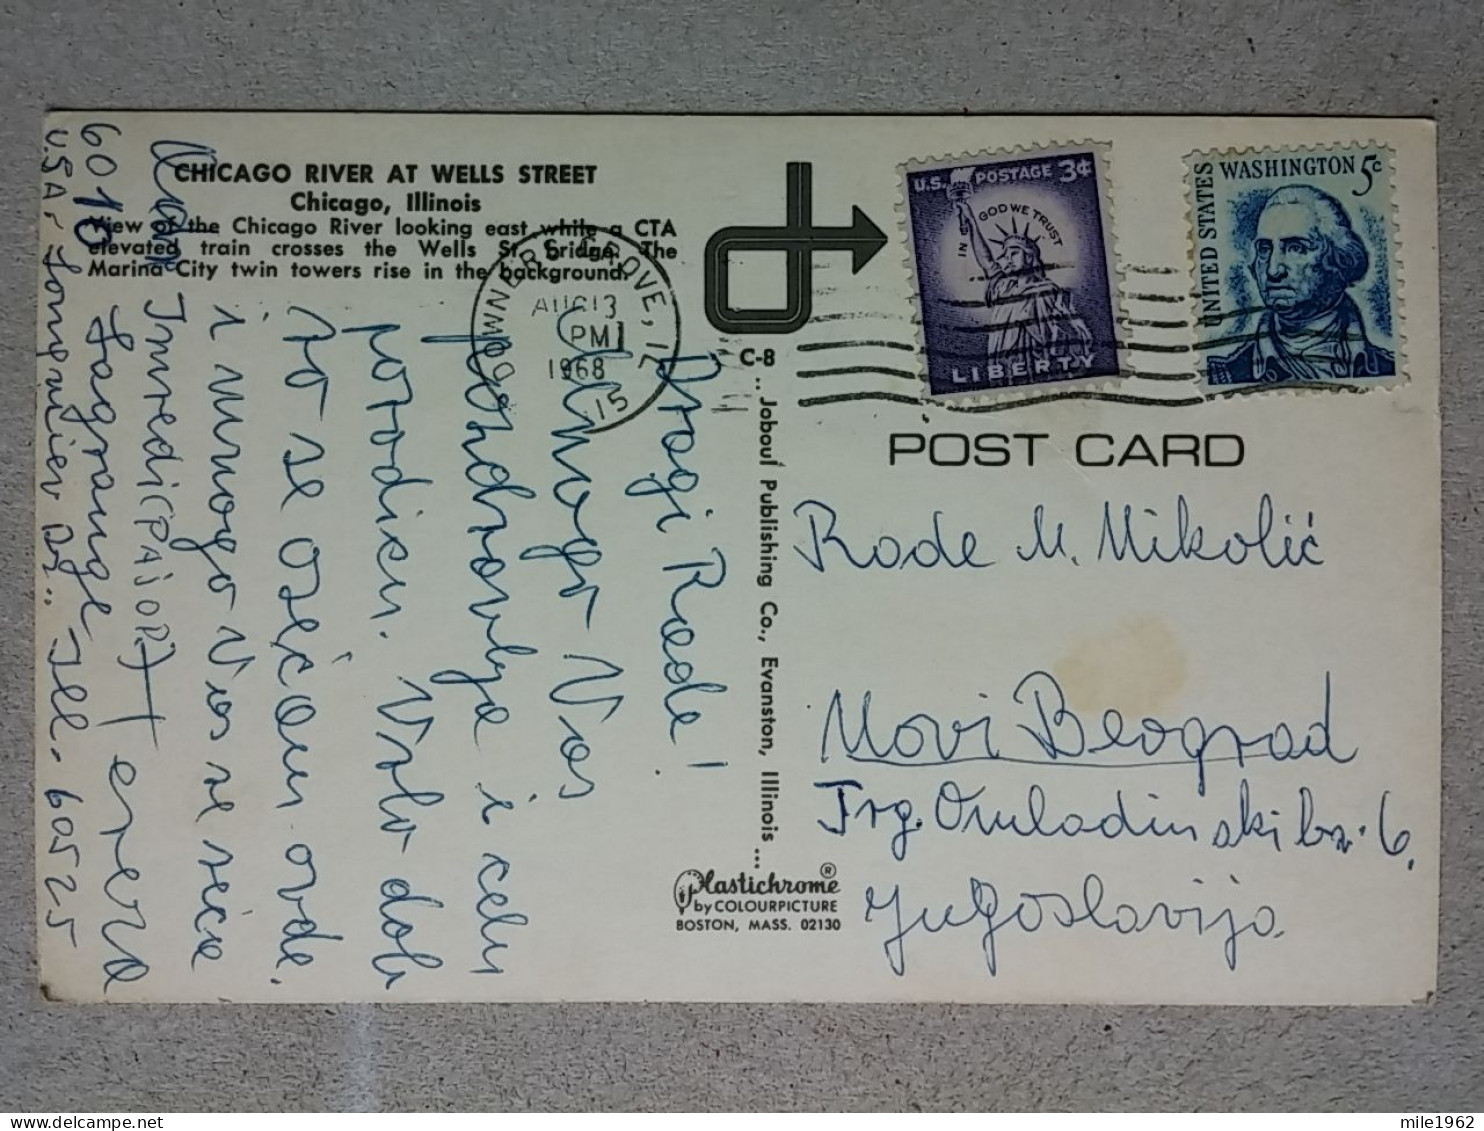 CHICAGO RIVER AT WELLS STREET
Chicago, Illinois
View of the Chicago River looking east while a CTA
elevated train crosses the Wells St. Bridge. The
Marina City twin towers rise in the background.
DOWNERS GROVE, IL
AUG 13
PM
1968
15
U.S. POSTAGE 3¢
IN GOD WE TRUST
LIBERTY
UNITED STATES
WASHINGTON 5c
POST CARD
C-8 .. Joboul Publishing Co., Evanston, Illinois ...
Plastichrome®
by COLOURPICTURE
BOSTON, MASS. 02130
Dragi Rade!
Mnogo Vas
pozdravlja i celu
porodicu. Vrlo dob
ro se osećam ovde.
i mnogo Vas se seća
60
Lagrange
U.S.A. Ill. 60525
Rade M. Mikolić
Novi Beograd
Trg. Omladinski br. 6.
Jugoslavija
mile1962